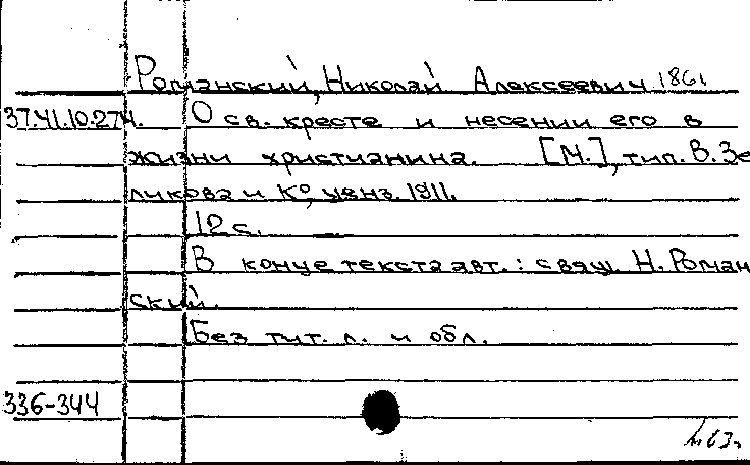 Романский, Николай Алексеевич 1861
37.41.10.274. О св. кресте и несении его в
жизни христианина. [М.], тип. В. Зе
ликова и К°, ценз. 1911.
12 с.
В конце текста авт.: свящ. Н. Роман
ский.
Без тит. л. и обл.
336-344